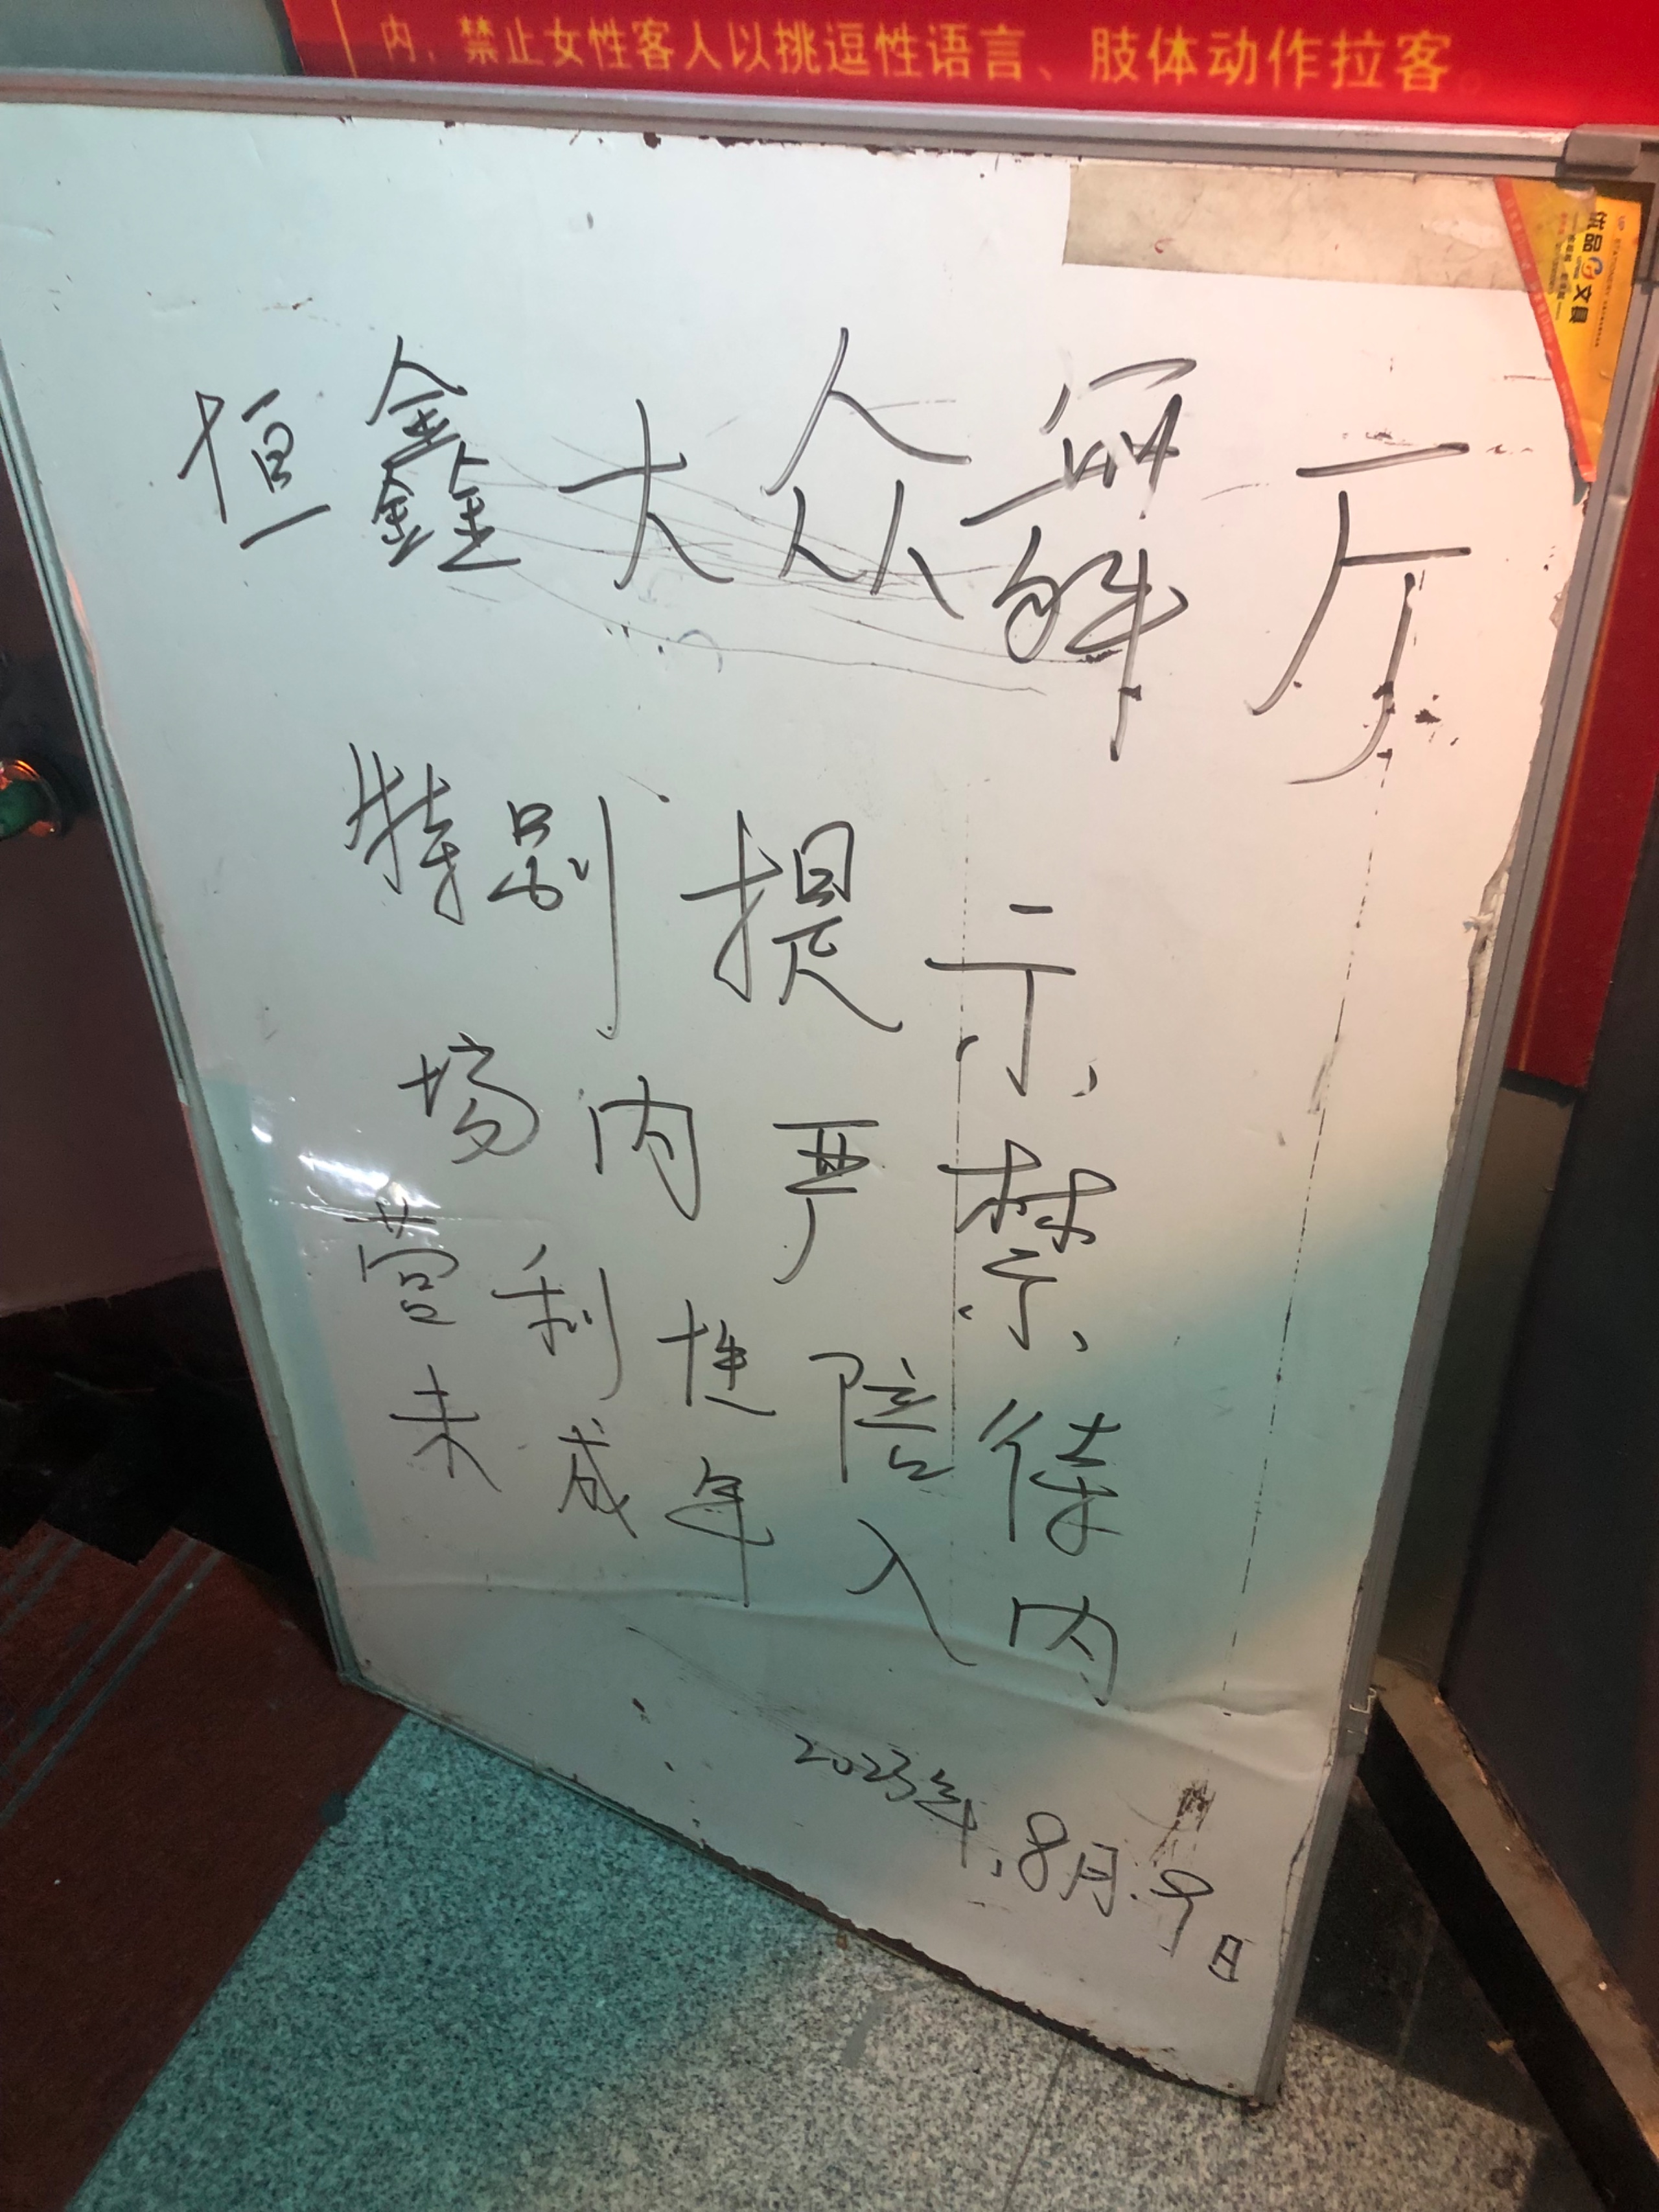 内，禁止女性客人以挑逗性语言、肢体动作拉客。
优品文具
恒鑫大众舞厅
特别提示
场内严禁
营利性陪侍
未成年入内
2023年.8月.9日